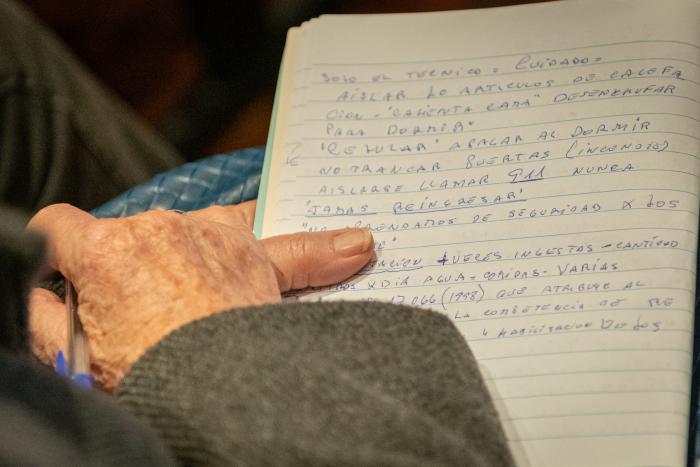 SOLO EL TECNICO = CUIDADO =
AISLAR LO ARTICULOS DE CALEFA
CION - "CALIENTA CAMA" DESENXUFAR
PARA DORMIR"
"CELULAR" APAGAR AL DORMIR
NO TRANCAR PUERTAS (INCENDIO)
AISLARSE LLAMAR 911 NUNCA
"JAMAS REINGRESAR"
DE SEGURIDAD X LOS
VECES INGESTAS - CANTIDAD
X DIA AGUA = COMIDAS = VARIAS
17.066 (1998) QUE ATRIBUYE AL
LA COMPETENCIA DE RE
HABILITACION DE LOS